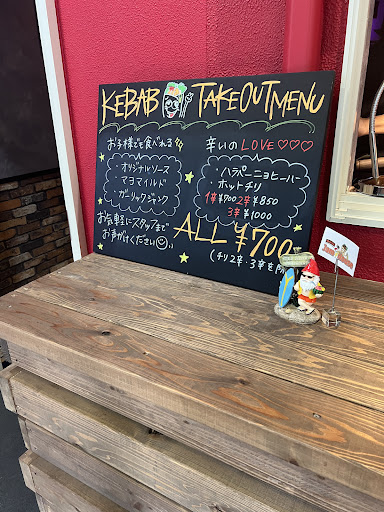 KEBAB TAKEOUT MENU
お子様でも食べれる
・オリジナルソース
・マヨマイルド
・ガーリックジャンク
お気軽にスタッフまで
お声がけください
辛いの LOVE♡♡♡
・ハラペーニョヒーハー
・ホットチリ
1辛¥700 2辛¥850
3辛¥1000
ALL ¥700
(チリ2辛、3辛を除